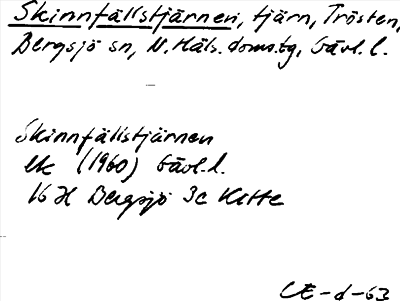 Skinnfällstjärnen, tjärn, Trösten,
Bergsjö sn, N. Häls. doms.bg, Gävl. l.
Skinnfällstjärnen
ek (1960) Gävl. l.
16 H Bergsjö 3c Kette
CE-d-63